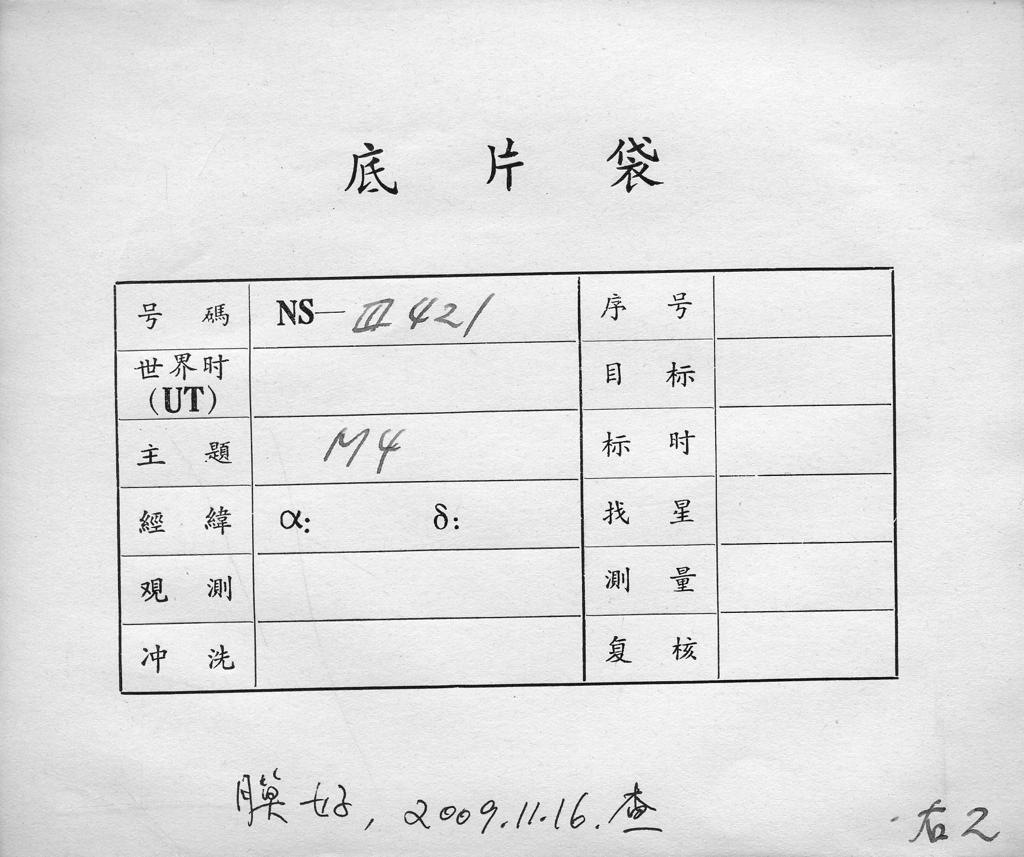 底片袋
号碼 NS—Ⅲ421 序号
世界时(UT) 目标
主題 M4 标时
經緯 α: δ: 找星
观測 測量
冲洗 复核
膜好, 2009.11.16.查
右2